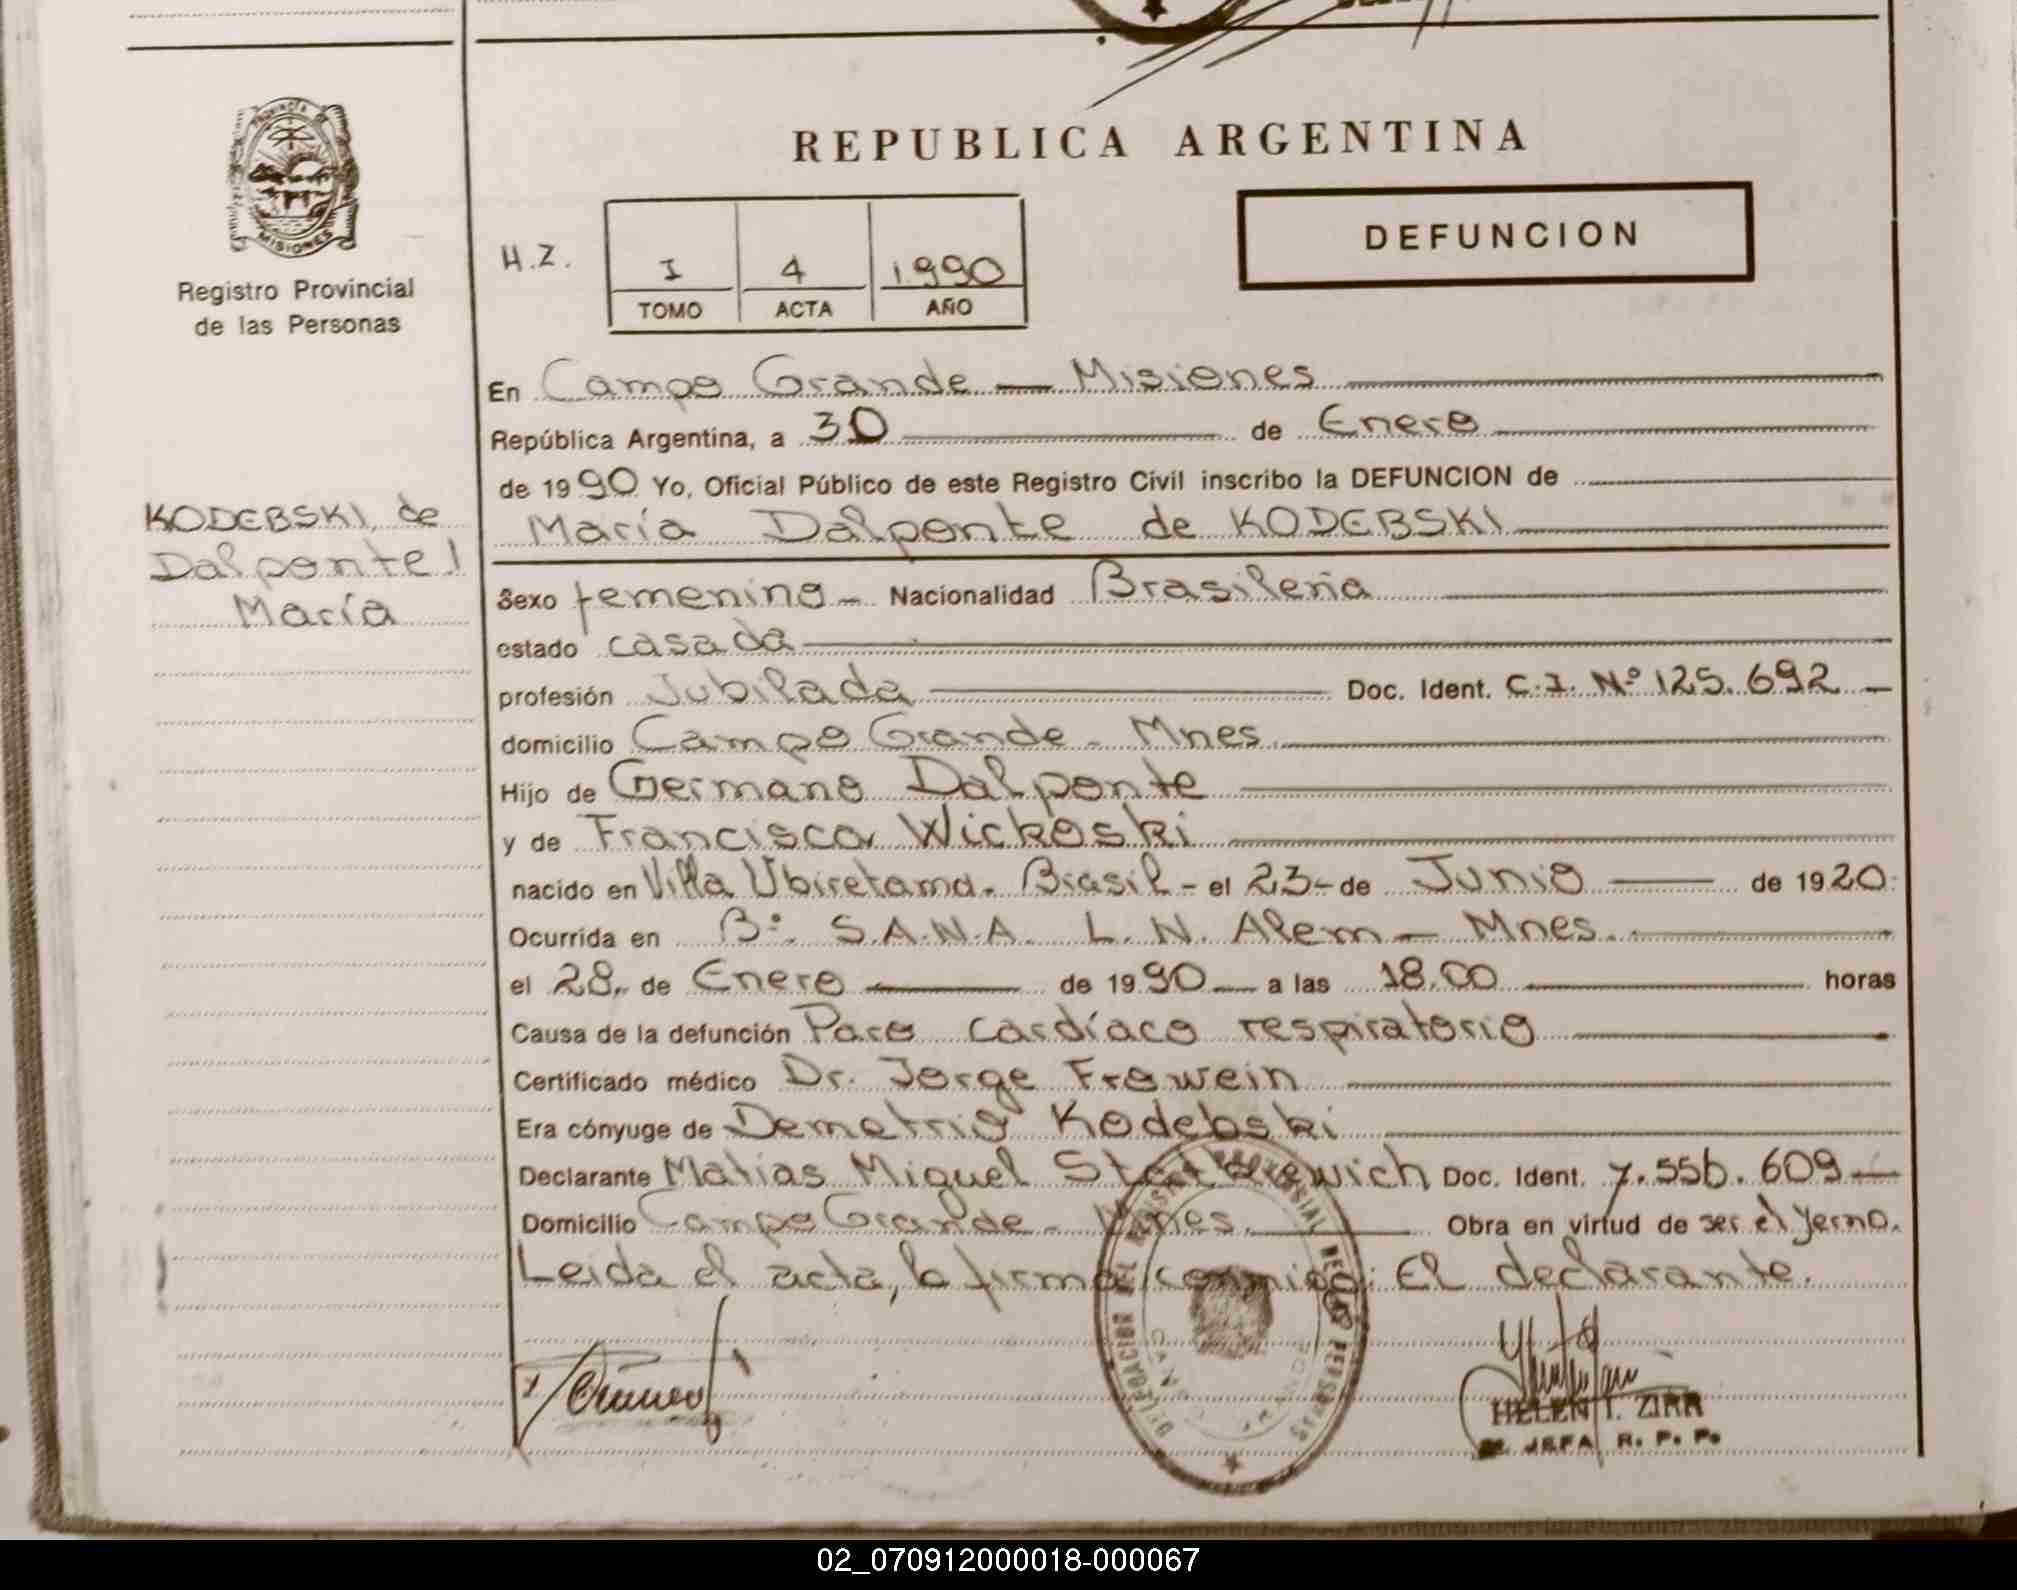 REPUBLICA ARGENTINA
PROVINCIA DE
MISIONES
Registro Provincial
de las Personas
H.Z.
I 4 1990
TOMO ACTA AÑO
DEFUNCION
En Campo Grande — Misiones
República Argentina, a 30 de Enero
de 1990 Yo, Oficial Público de este Registro Civil inscribo la DEFUNCION de
María Dalponte de KODEBSKI
KODEBSKI, de
Dalponte!
María
Sexo femenino - Nacionalidad Brasileña
estado casada
profesión Jubilada Doc. Ident. C.I. Nº 125.692 -
domicilio Campo Grande - Mnes.
Hijo de Germano Dalponte
y de Francisca Wickoski
nacido en Villa Ubiretama. Brasil - el 23- de Junio de 1920
Ocurrida en Bº. S.A.N.A. L. N. Alem — Mnes.
el 28. de Enero de 1990 a las 18.00 horas
Causa de la defunción Paro cardíaco respiratorio
Certificado médico Dr. Jorge Frowein
Era cónyuge de Demetrio Kodebski
Declarante Matías Miguel Doc. Ident. 7.556.609 —
Domicilio Campo Grande - Mnes. Obra en virtud de ser el yerno.
Leida el acta, la firma conmigo: El declarante.
DELEGACION DEL REGISTRO PROVINCIAL DE LAS PERSONAS
CAMPO GRANDE
HELEN I. ZIRR
JEFA R. P. P.
02_070912000018-000067